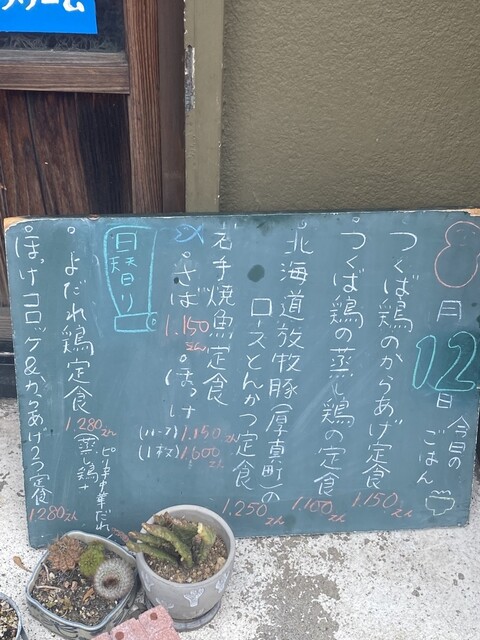 8月12日 今日のごはん
つくば鶏のからあげ定食 1.150えん
つくば鶏の蒸し鶏の定食 1.100えん
北海道放牧豚(厚真町)の
ロースとんかつ定食 1.250えん
岩手焼魚定食
さば 1.150えん
ほっけ
(ハーフ) 1.150えん
(1枚) 1.600えん
日替り
よだれ鶏定食 1.280えん
(蒸し鶏+ピリ辛中華だれ)
ほっけコロッケ&からあげ2つ定食 1280えん
クリーム